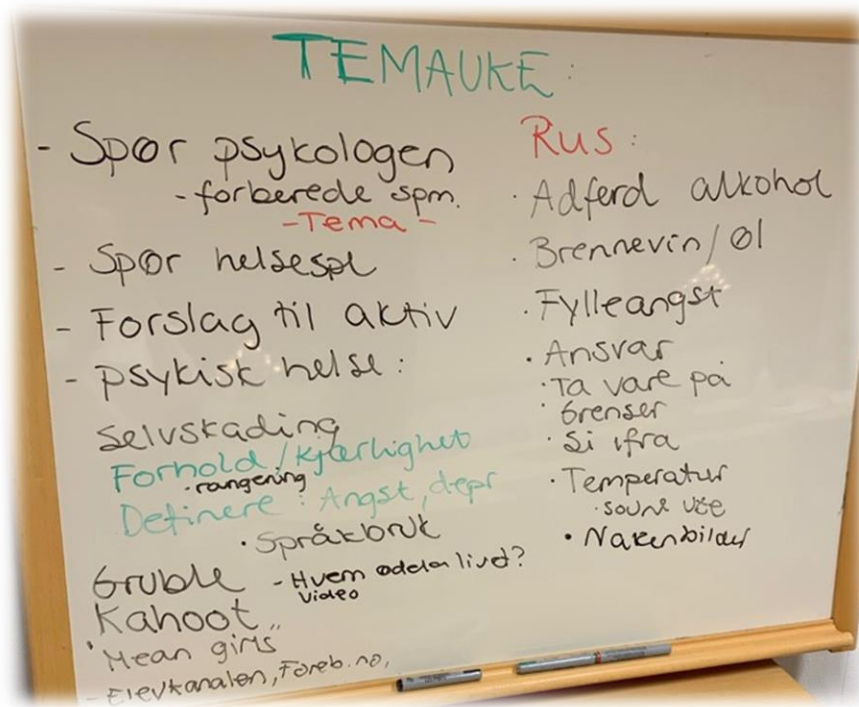 TEMAUKE:
- Spør psykologen
- forberede spm.
- Tema -
- Spør helsespl
- Forslag til aktiv
- psykisk helse:
selvskading
Forhold/kjærlighet
· rangering
Definere: Angst, depr
· Språkbruk
Gruble - Hvem ødela livet?
video
Kahoot
"Mean girls
- Elevkanalen, Foreb.no,
Rus:
· Adferd alkohol
· Brennevin/øl
· Fylleangst
· Ansvar
· Ta vare på
· Grenser
· Si ifra
· Temperatur
· sovne ute
· Nakenbilder